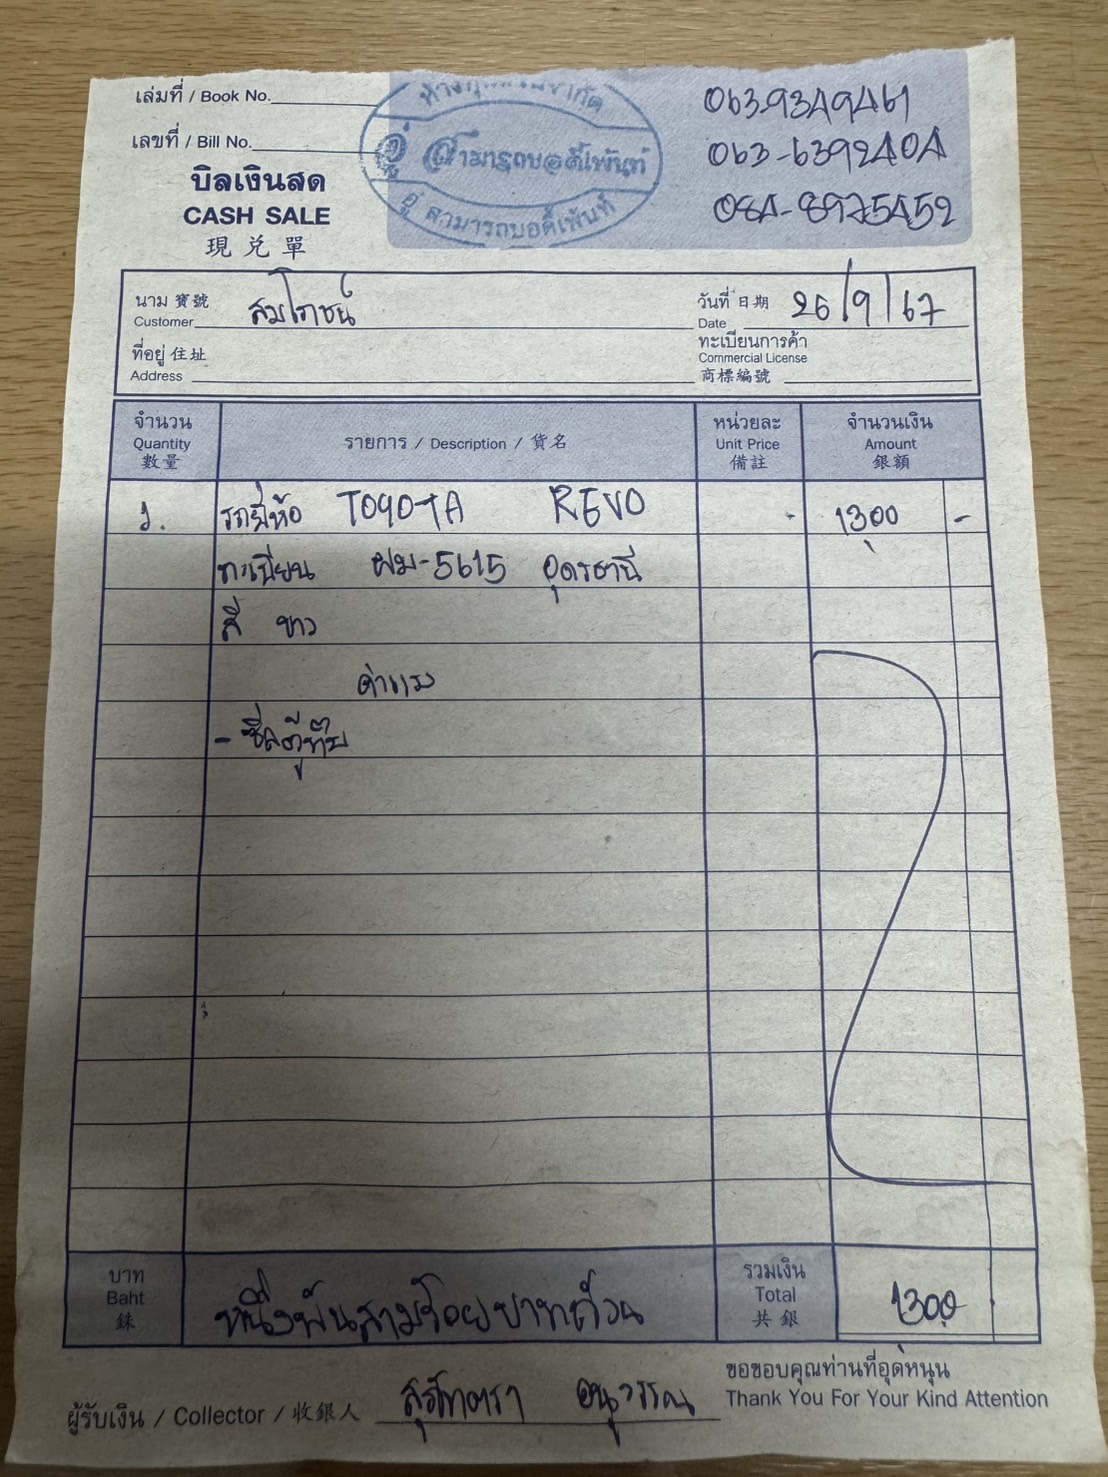 เล่มที่ / Book No.
เลขที่ / Bill No.
บิลเงินสด
CASH SALE
現兌單
อู่ สามารถบอดี้เพ้นท์
อู่ สามารถบอดี้เพ้นท์
063-9349461
063-6392404
084-8975452
นาม 寶號 สมโภชน์
Customer
วันที่ 日期 26/9/67
Date
ที่อยู่ 住址
Address
ทะเบียนการค้า
Commercial License
商標編號
จำนวน รายการ / Description / 貨名 หน่วยละ จำนวนเงิน
Quantity Unit Price Amount
數量 備註 銀額
1. รถยี่ห้อ TOYOTA REVO - 1300 -
ทะเบียน ผม-5615 อุดรธานี
สี ขาว
ค่าแรง
- ซีลตู้ทึบ
บาท
Baht
銖
หนึ่งพันสามร้อยบาทถ้วน
รวมเงิน
Total
共銀
1300
ขอขอบคุณท่านที่อุดหนุน
Thank You For Your Kind Attention
ผู้รับเงิน / Collector / 收銀人